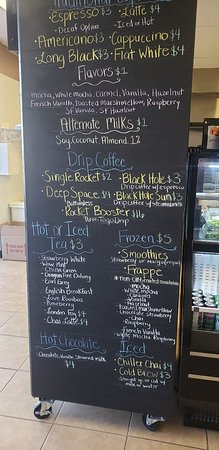 Traditional
Espresso $3
Latte $4
- Decaf Option
- Iced or Hot
Americano $3
Cappuccino $4
Long Black $3
Flat White $4
Flavors $1
mocha, white mocha, Carmel, Vanilla, Hazelnut
French Vanilla, Toasted Marshmellow, Raspberry
SF Vanilla, SF Hazelnut
Alternate Milks $1
Soy, Coconut, Almond,
Drip Coffee
Single Rocket $2
Black Hole $3
Drip coffee w/ espresso
Deep Space $4
Black Hole Sun $3
Rocket Booster $16
Hot or Iced
Tea $3
Strawberry White
China Green
Earl Grey
English Breakfast
London Fog $4
Chai Latte $4
Hot Chocolate
Chocolate, Vanilla,
$4
Frozen $5
Smoothies
Strawberry or
Frappe
mocha
White Mocha
Caramel
Vanilla
Hazelnut
Toasted marshmellow
Chocolate
Strawberry
Chai
Raspberry
French Vanilla
White mocha Raspberry
Iced
Chiller Chai $4
Cold Brew $3
Straight up or cut w/
milk or water